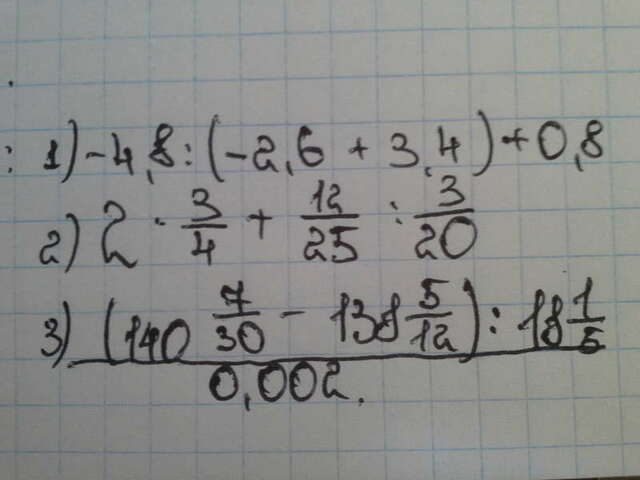 : 1) -4,8 : (-2,6 + 3,4) + 0,8
2) 2 · 3/4 + 12/25 : 3/20
3) (140 7/30 - 138 5/12) : 18 1/5
0,002.